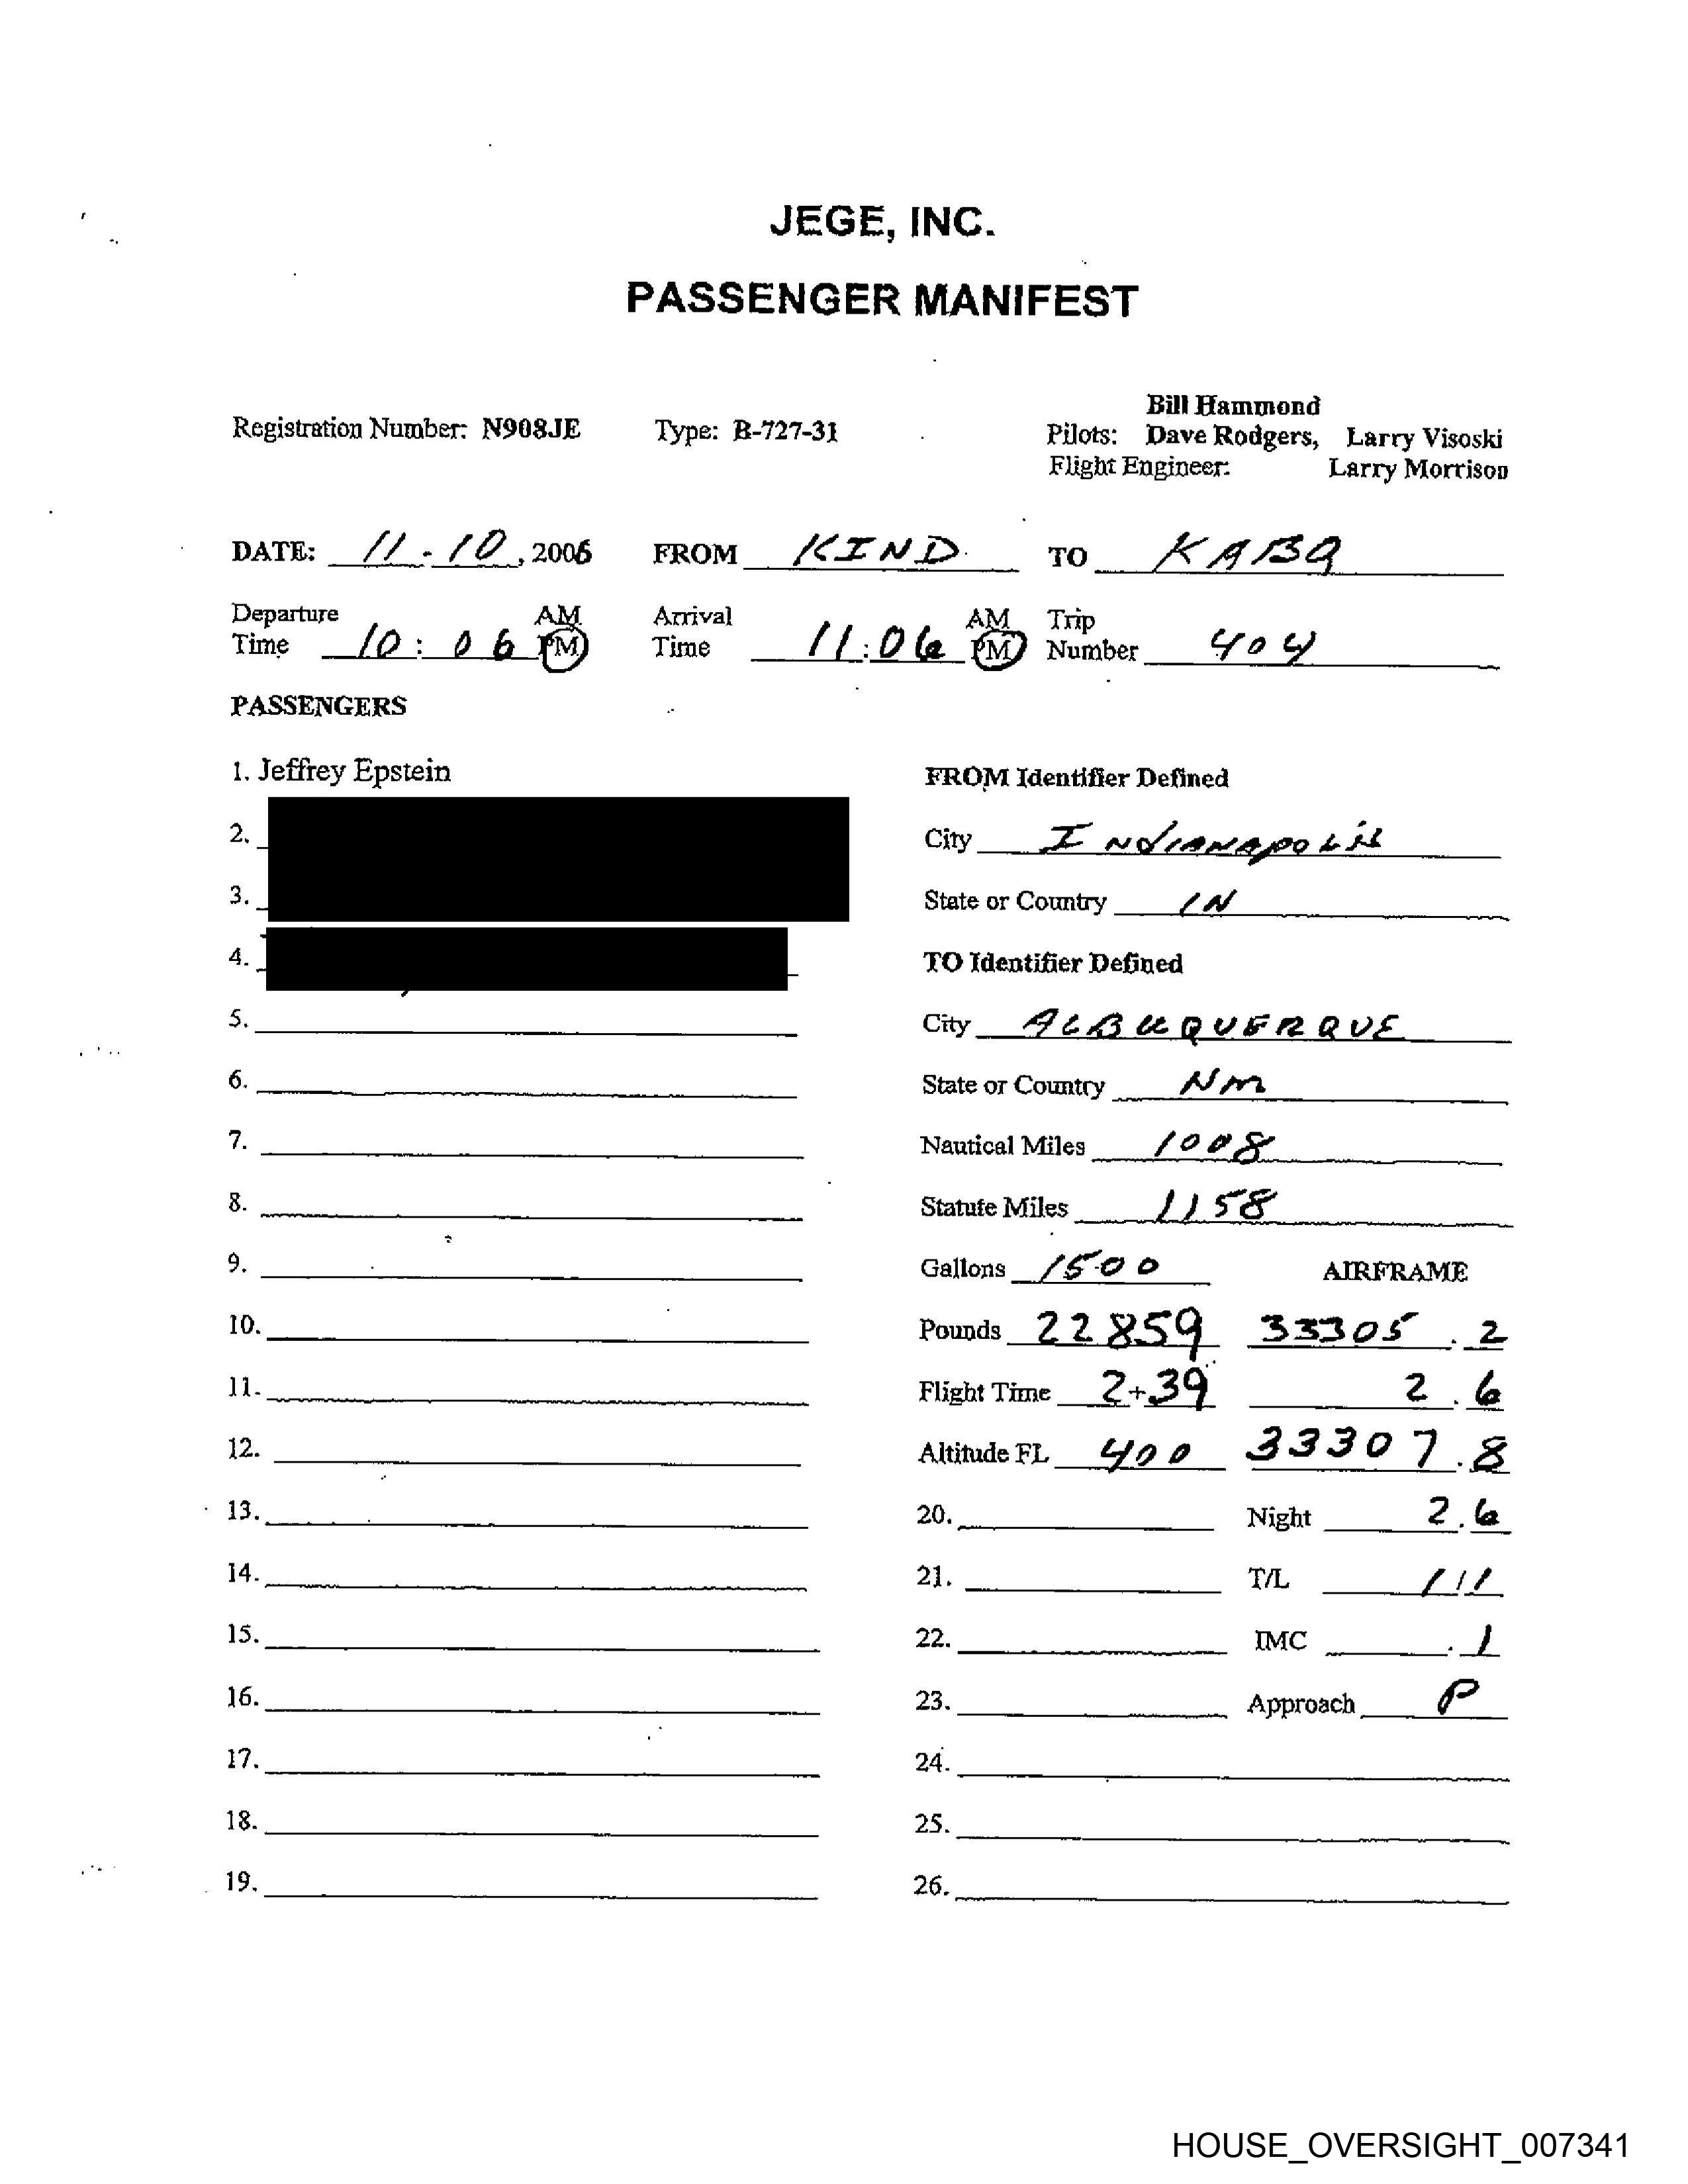 JEGE, INC.
PASSENGER MANIFEST
Bill Hammond
Registration Number: N908JE Type: B-727-31 Pilots: Dave Rodgers, Larry Visoski
Flight Engineer: Larry Morrison
DATE: 11-10, 2006 FROM KIND TO KABQ
Departure Time 10:06 AM PM Arrival Time 11:06 AM PM Trip Number 404
PASSENGERS
1. Jeffrey Epstein
2.
3.
4.
5.
6.
7.
8.
9.
10.
11.
12.
13.
14.
15.
16.
17.
18.
19.
FROM Identifier Defined
City INDIANAPOLIS
State or Country IN
TO Identifier Defined
City ALBUQUERQUE
State or Country NM
Nautical Miles 1008
Statute Miles 1158
Gallons 1500 AIRFRAME
Pounds 22859 33305.2
Flight Time 2+39 2.6
Altitude FL 400 33307.8
20. Night 2.6
21. T/L 1/1
22. IMC .1
23. Approach P
24.
25.
26.
HOUSE_OVERSIGHT_007341